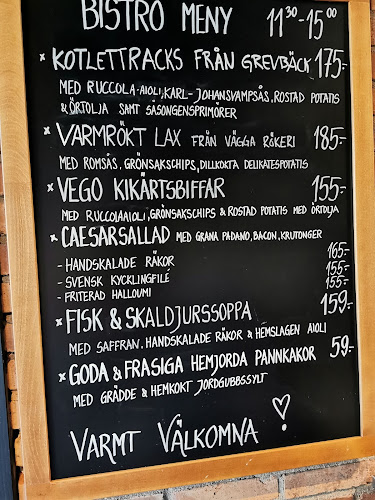 BISTRO MENY 11³⁰-15⁰⁰
× KOTLETTRACKS FRÅN GREVBÄCK 175:-
MED RUCCOLA-AIOLI, KARL-JOHANSVAMPSÅS, ROSTAD POTATIS
& ÖRTOLJA SAMT SÄSONGENSPRIMÖRER
× VARMRÖKT LAX FRÅN VÄGGA RÖKERI 185:-
MED ROMSÅS, GRÖNSAKSCHIPS, DILLKOKTA DELIKATESSPOTATIS
× VEGO KIKÄRTSBIFFAR 155:-
MED RUCCOLAAIOLI, GRÖNSAKSCHIPS & ROSTAD POTATIS MED ÖRTOLJA
× CAESARSALLAD MED GRANA PADANO, BACON, KRUTONGER
- HANDSKALADE RÄKOR 165:-
- SVENSK KYCKLINGFILÉ 155:-
- FRITERAD HALLOUMI 155:-
× FISK & SKALDJURSSOPPA 159:-
MED SAFFRAN, HANDSKALADE RÄKOR & HEMSLAGEN AIOLI
× GODA & FRASIGA HEMJORDA PANNKAKOR 59:-
MED GRÄDDE & HEMKOKT JORDGUBBSSYLT
VARMT VÄLKOMNA